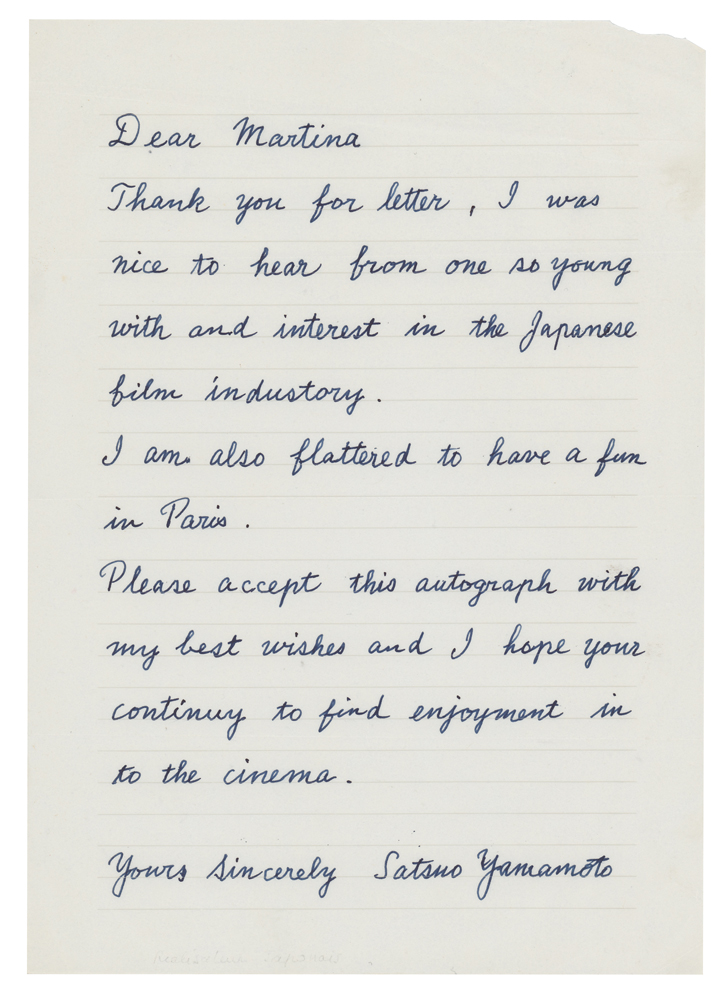 Dear Martina
Thank you for letter , I was
nice to hear from one so young
with and interest in the Japanese
film industory .
I am also flattered to have a fun
in Paris .
Please accept this autograph with
my best wishes and I hope your
continuy to find enjoyment in
to the cinema .
Yours sincerely Satsuo Yamamoto